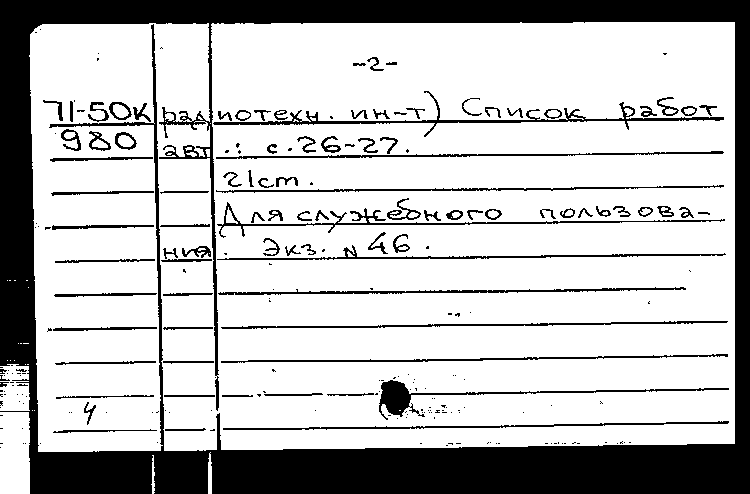 -2-
71-50к радиотехн. ин-т) Список работ
980 авт.: с.26-27.
21см.
Для служебного пользова-
ния. Экз. N 46.
4